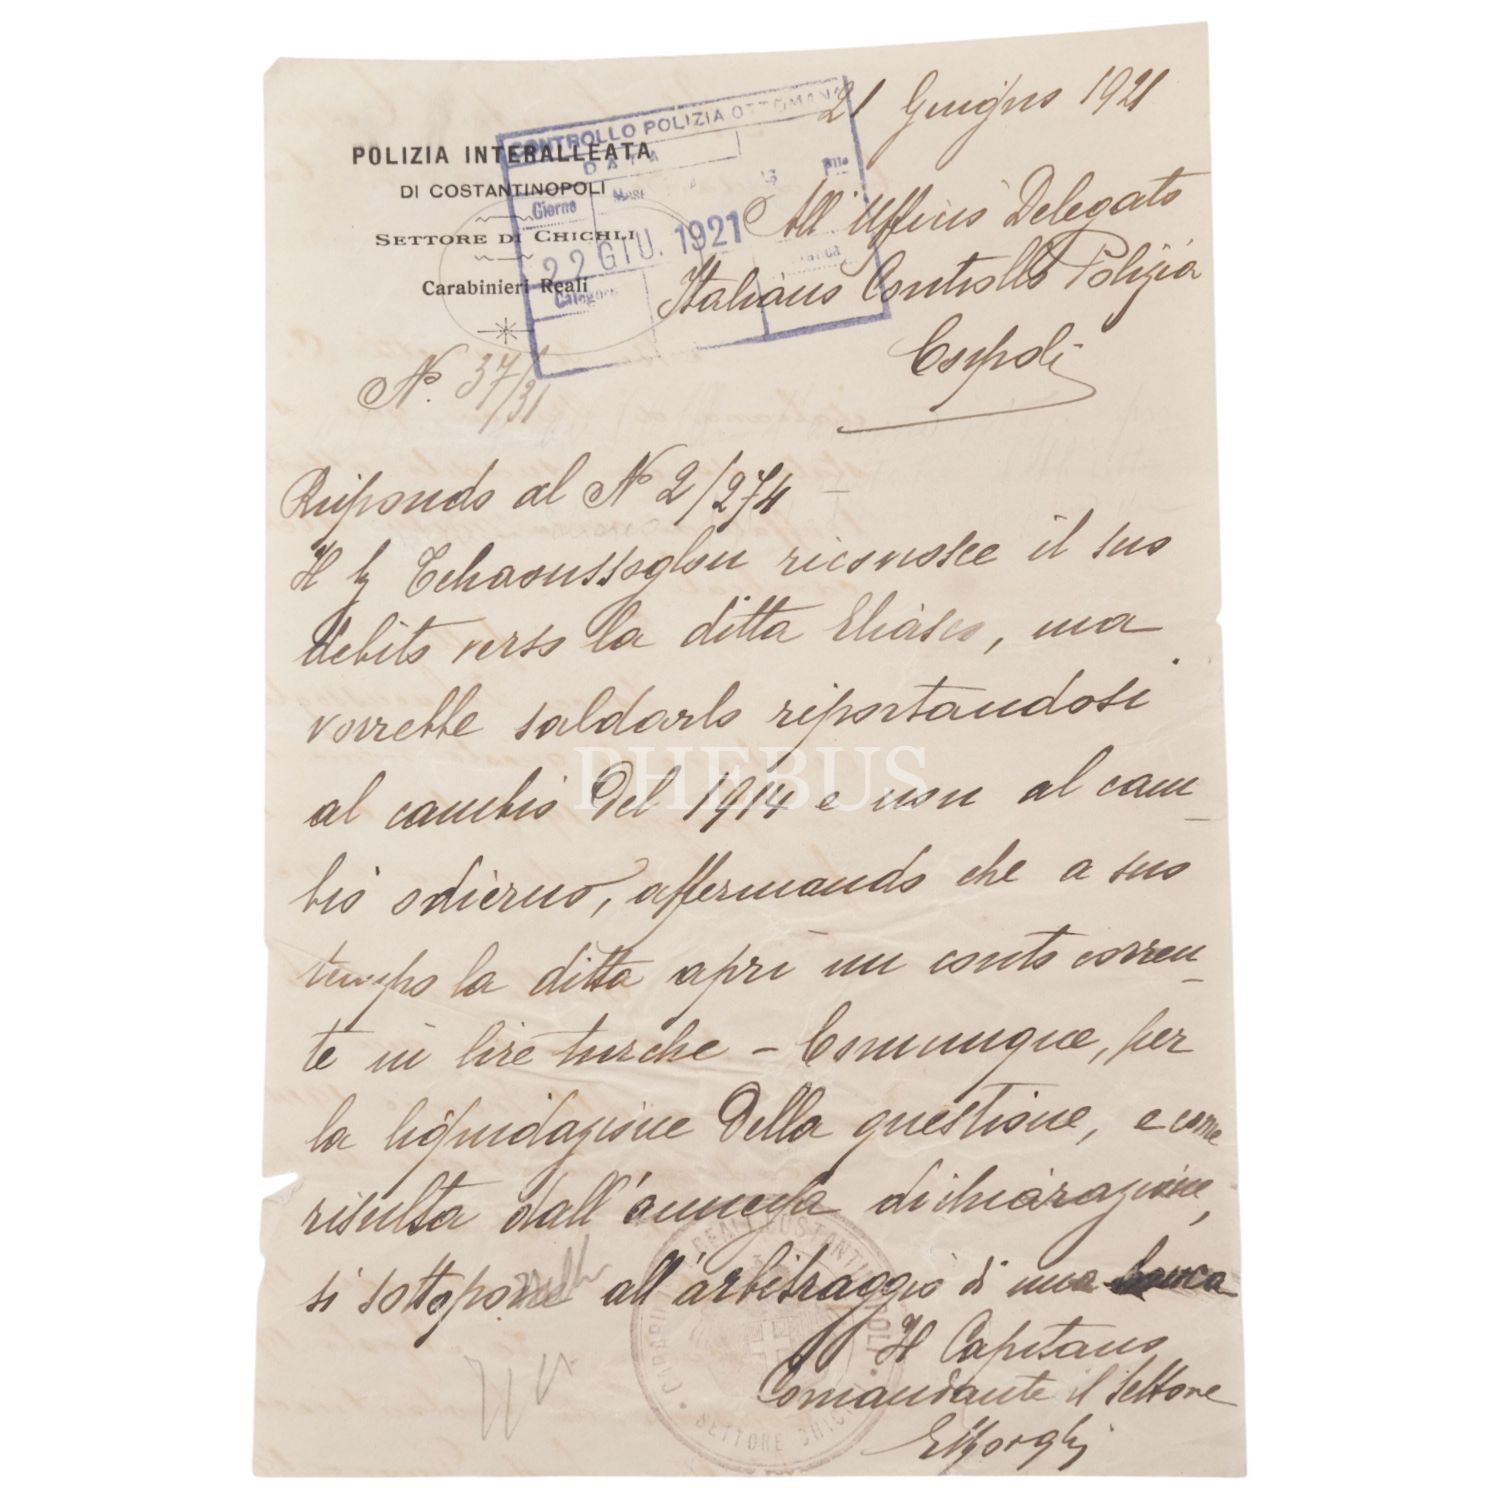 21 Giugno 1921
CONTROLLO POLIZIA OTTOMANA
DATA
Giorno Mese
22 GIU. 1921
Categor
POLIZIA INTERALLEATA
DI COSTANTINOPOLI
SETTORE DI CHICHLI
Carabinieri Reali
N. 37/31
All'Ufficio Delegato
Italiano Controllo Polizia
Cospoli
Rispondo al No 2/274
Il Sg Tchaoussoglou riconosce il suo
debito verso la ditta Eliasco, ma
vorrebbe saldarlo riportandosi
al cambio del 1914 e non al cam_
bio odierno, affermando che a suo
tempo la ditta aprì un conto corren_
te in lire turche - Comunque, per
la liquidazione della questione, e come
risulta dall'annessa dichiarazione,
si sottoporrebbe all'arbitraggio di una banca
Il Capitano
Comandante il Settore
CARABINIERI REALI COSTANTINOPOLI
SETTORE CHICHLI
PHEBUS